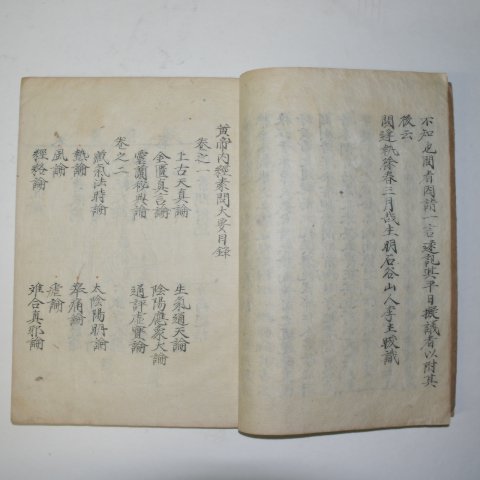 不知也 請一言遂 其平日擬議者以附其
後云
閼逢執徐春三月哉生明石谷山人李圭晙識
黃帝內經素問大要目錄
卷之一
上古天真論 生氣通天論
金匱真言論 陰陽應象大論
靈蘭秘典論 通評虛實論
卷之二
藏氣法時論 太陰陽明論
熱論 舉痛論
風論 瘧論
經絡論 離合真邪論